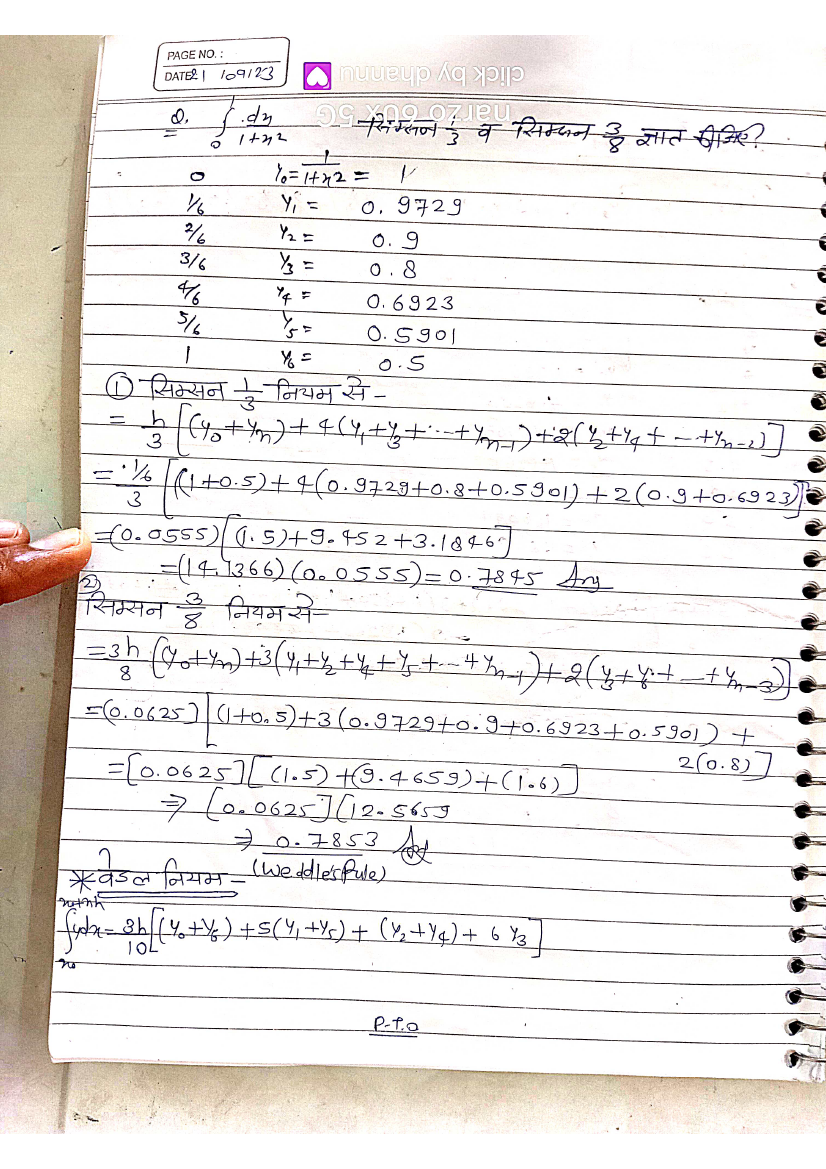 PAGE NO. :
DATE 21 / 09/23
click by dhannu
narzo 60x 5G
Q. ∫₀ dx/(1+x²) सिम्सन 1/3 व सिम्सन 3/8 ज्ञात कीजिए?
0 y₀ = 1/(1+x²) = 1
1/6 y₁ = 0.9729
2/6 y₂ = 0.9
3/6 y₃ = 0.8
4/6 y₄ = 0.6923
5/6 y₅ = 0.5901
1 y₆ = 0.5
① सिम्सन 1/3 नियम से -
= h/3 [(y₀+yₙ) + 4(y₁+y₃+---+yₙ₋₁) + 2(y₂+y₄+--+yₙ₋₂)]
= 1/6/3 [(1+0.5)+4(0.9729+0.8+0.5901)+2(0.9+0.6923)]
= (0.0555) [(1.5)+9.452+3.1846]
= (14.1366)(0.0555) = 0.7845 Ans
2) सिम्सन 3/8 नियम से -
= 3h/8 [(y₀+yₙ)+3(y₁+y₂+y₄+y₅+--+yₙ₋₁)+2(y₃+y₆+--+yₙ₋₃)]
= (0.0625] [(1+0.5)+3(0.9729+0.9+0.6923+0.5901) +
2(0.8)]
= [0.0625] [(1.5)+(9.4659)+(1.6)]
⇒ [0.0625] [12.5659
⇒ 0.7853 Ans
* वेडल नियम - (Weddle's Rule)
∫ₓ₀^(x₀+nh) y dx = 3h/10 [(y₀+y₆)+5(y₁+y₅)+(y₂+y₄)+6y₃]
P.T.O